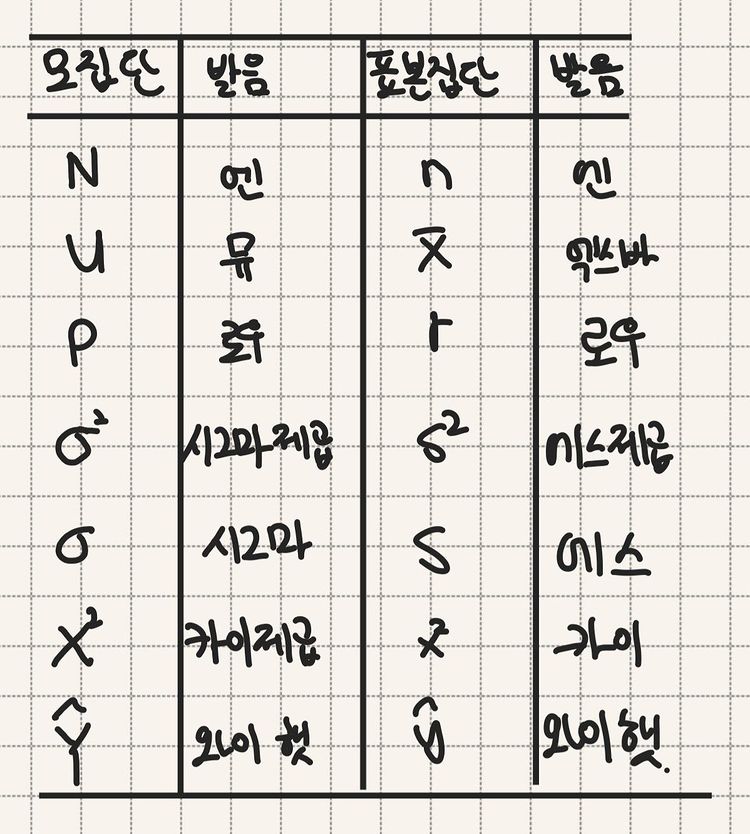 모집단 발음 표본집단 발음
N 엔 n 엔
U 뮤 x̄ 엑스바
ρ 로우 r 로우
σ² 시그마제곱 s² 에스제곱
σ 시그마 s 에스
X² 카이제곱 x² 카이
Ŷ 와이 햇 ŷ 와이햇.